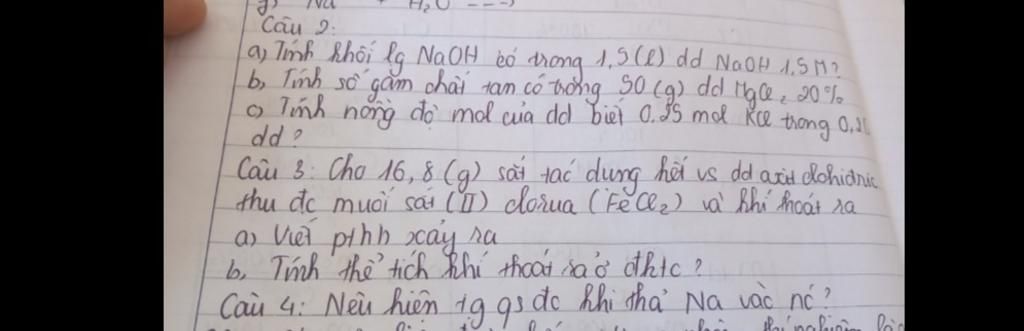 g) Na + H₂O --->
Câu 2:
a) Tính khối lg NaOH có trong 1,5(l) dd NaOH 1,5M?
b, Tính số gam chất tan có trong 50(g) dd MgCl₂ 20%
c) Tính nồng độ mol của dd biết 0.25 mol KCl trong
dd?
Câu 3: Cho 16,8(g) sắt tác dụng hết vs dd axit clohidric
thu đc muối sắt (II) clorua (FeCl₂) và khí thoát ra
a) Viết pthh xảy ra
b, Tính thể tích khí thoát ra ở đktc?
Câu 4: Nêu hiện tg qs đc khi thả Na vào nc?